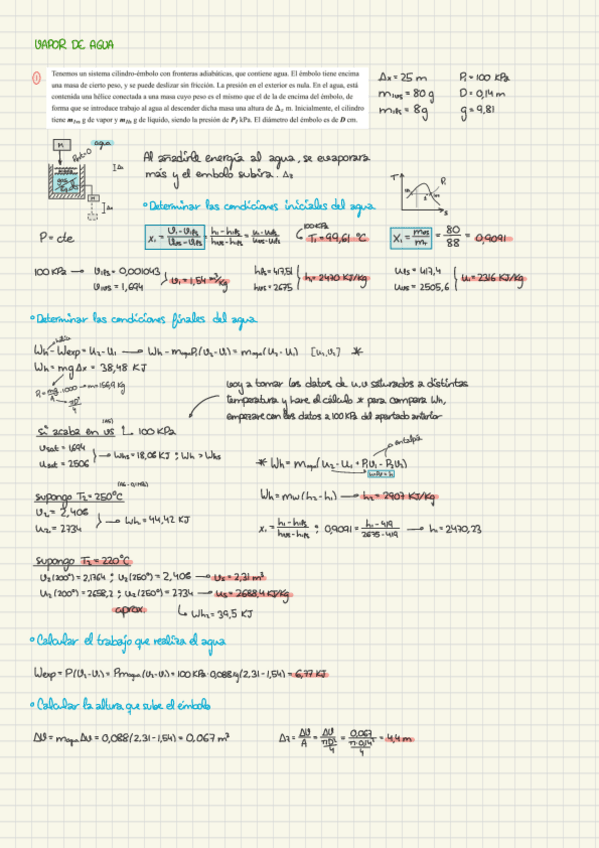 VAPOR DE AGUA
① Tenemos un sistema cilindro-émbolo con fronteras adiabáticas, que contiene agua. El émbolo tiene encima
una masa de cierto peso, y se puede deslizar sin fricción. La presión en el exterior es nula. En el agua, está
contenida una hélice conectada a una masa cuyo peso es el mismo que el de la de encima del émbolo, de
forma que se introduce trabajo al agua al descender dicha masa una altura de Δx m. Inicialmente, el cilindro
tiene m1vs g de vapor y m1ls g de líquido, siendo la presión de P1 kPa. El diámetro del émbolo es de D cm.
Δx = 25 m P1 = 100 KPa
m1vs = 80 g D = 0,14 m
m1ls = 8 g g = 9,81
M
agua
Δx
Al añadirle energía al agua, se evaporara
más y el embolo subira. Δz
T
s
° Determinar las condiciones iniciales del agua
P = cte
100KPa
T1 = 99,61 °C
= 80/88 = 0,9091
100 KPa → vls = 0,001043
vvs = 1,694
v1 = 1,54 m³/kg
hls = 417,51
hvs = 2675
h1 = 2470 KJ/Kg
uls = 417,4
uvs = 2505,6
u1 = 2316 KJ/Kg
° Determinar las condiciones finales del agua
Wh - Wexp = U2 - U1 → Wh - magua P1(v2 - v1) = magua(u2 - u1) [u2, v2] *
Wh = mgΔx = 38,48 KJ
m = 156,9 Kg
voy a tomar los datos de u,v saturados a distintas
temperatura y hare el cálculo * para compara Wh,
empezare con los datos a 100KPa del apartado anterior
si acaba en vs ↳ 100 KPa
vsat = 1,694
usat = 2506
→ Whs = 18,06 KJ ; Wh > Whs
entalpía
* Wh = magua(u2 - u1 + P2v2 - P1v1)
supongo T2 = 250°C
v2 = 2,406
u2 = 2734
→ Wh = 44,42 KJ
→ h2 = 2907 KJ/Kg
0,9091 = (h1 - 419)/(2675 - 419) → h1 = 2470,23
supongo T2 = 220°C
v2(200°) = 2,1764 ; v2(250°) = 2,406 → v2 = 2,31 m³
u2(200°) = 2658,2 ; u2(250°) = 2734 → u2 = 2688,4 KJ/Kg
aprox. ↳ Wh2 = 39,5 KJ
° Calcular el trabajo que realiza el agua
Wexp = P(V2 - V1) = Pmagua(v2 - v1) = 100 KPa · 0,088g(2,31 - 1,54) = 6,77 KJ
° Calcular la altura que sube el émbolo
ΔV = magua Δv = 0,088(2,31 - 1,54) = 0,067 m³
Δz = ΔV/A = ΔV/(πD²/4) = 0,067/(π·0,14²/4) = 4,4 m